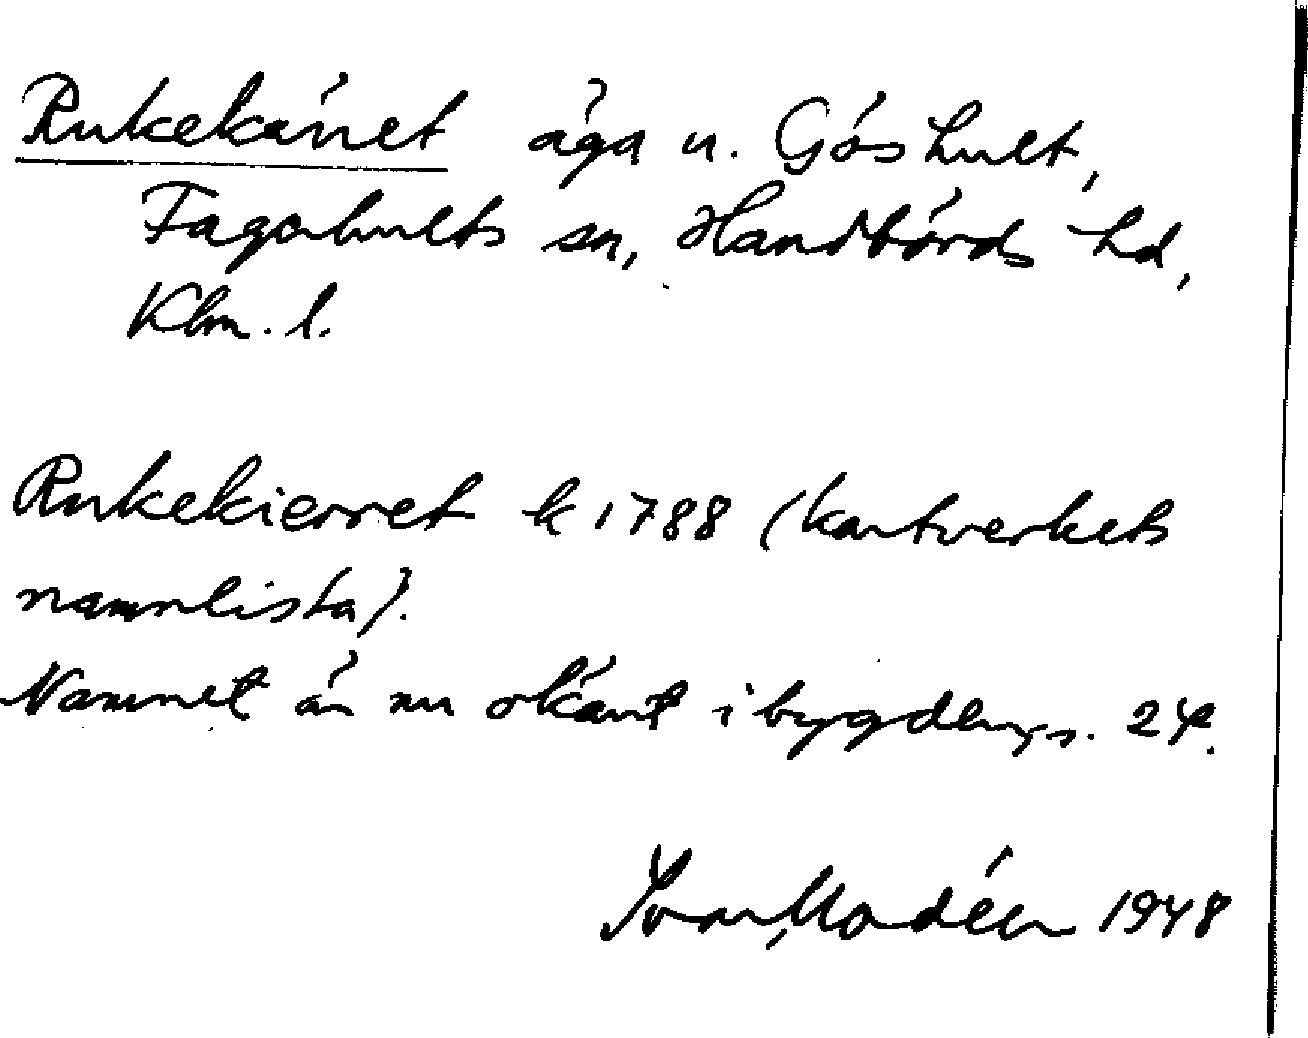 Rukekärret äga u. Göshult,
Fagerhults sn, Handbörds hd,
Klm. l.
Rukekierret k 1788 (kartverkets
namnlista).
Namnet är nu okänt i bygden, s. 24.
Ivar Modéer 1948